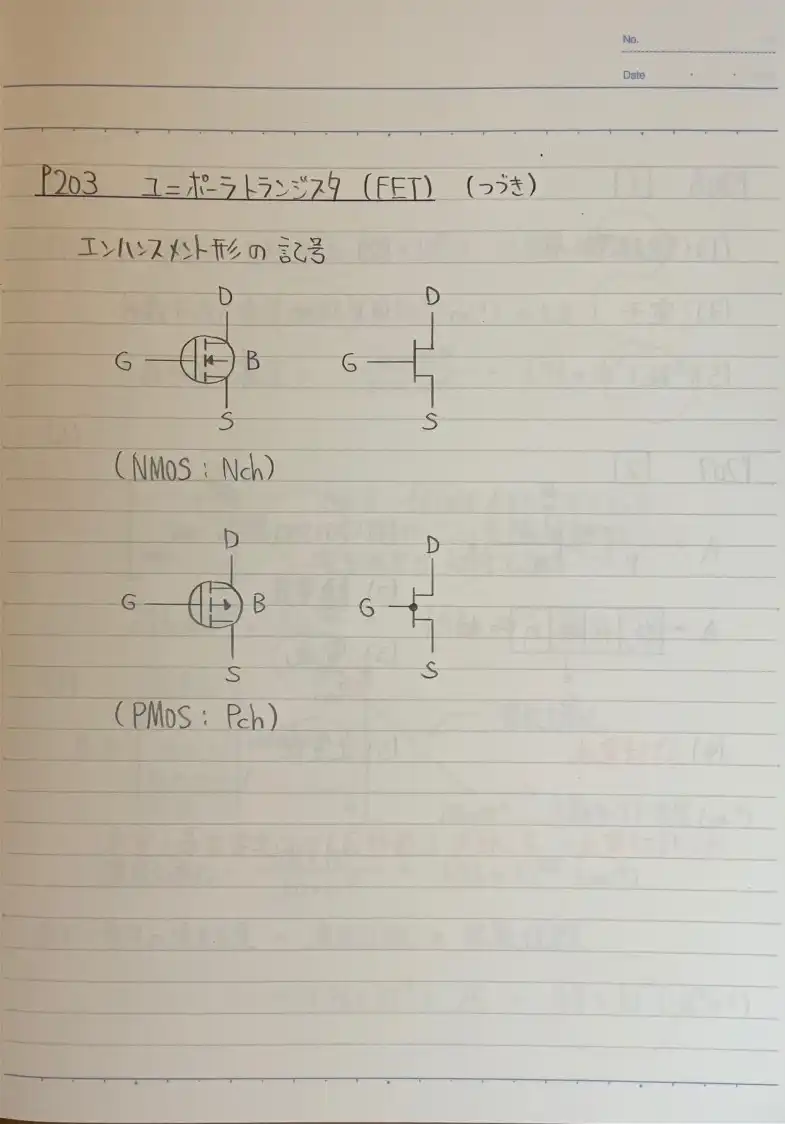 No.
Date
P203 ユニポーラトランジスタ (FET) (つづき)
エンハンスメント形の記号
D D
G B G
S S
(NMOS : Nch)
D D
G B G
S S
(PMOS : Pch)